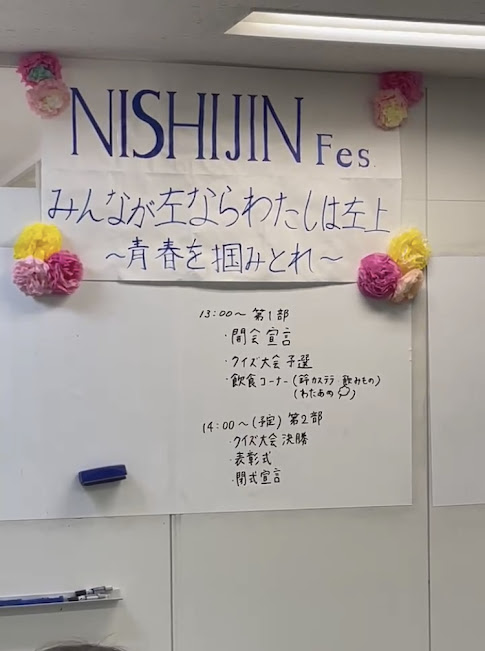 NISHIJIN Fes.
みんなが左ならわたしは左上
~青春を掴みとれ~
13:00~ 第1部
・開会宣言
・クイズ大会予選
・飲食コーナー(鈴カステラ 飲みもの)
(わたあめ)
14:00~(予定) 第2部
・クイズ大会決勝
・表彰式
・閉式宣言